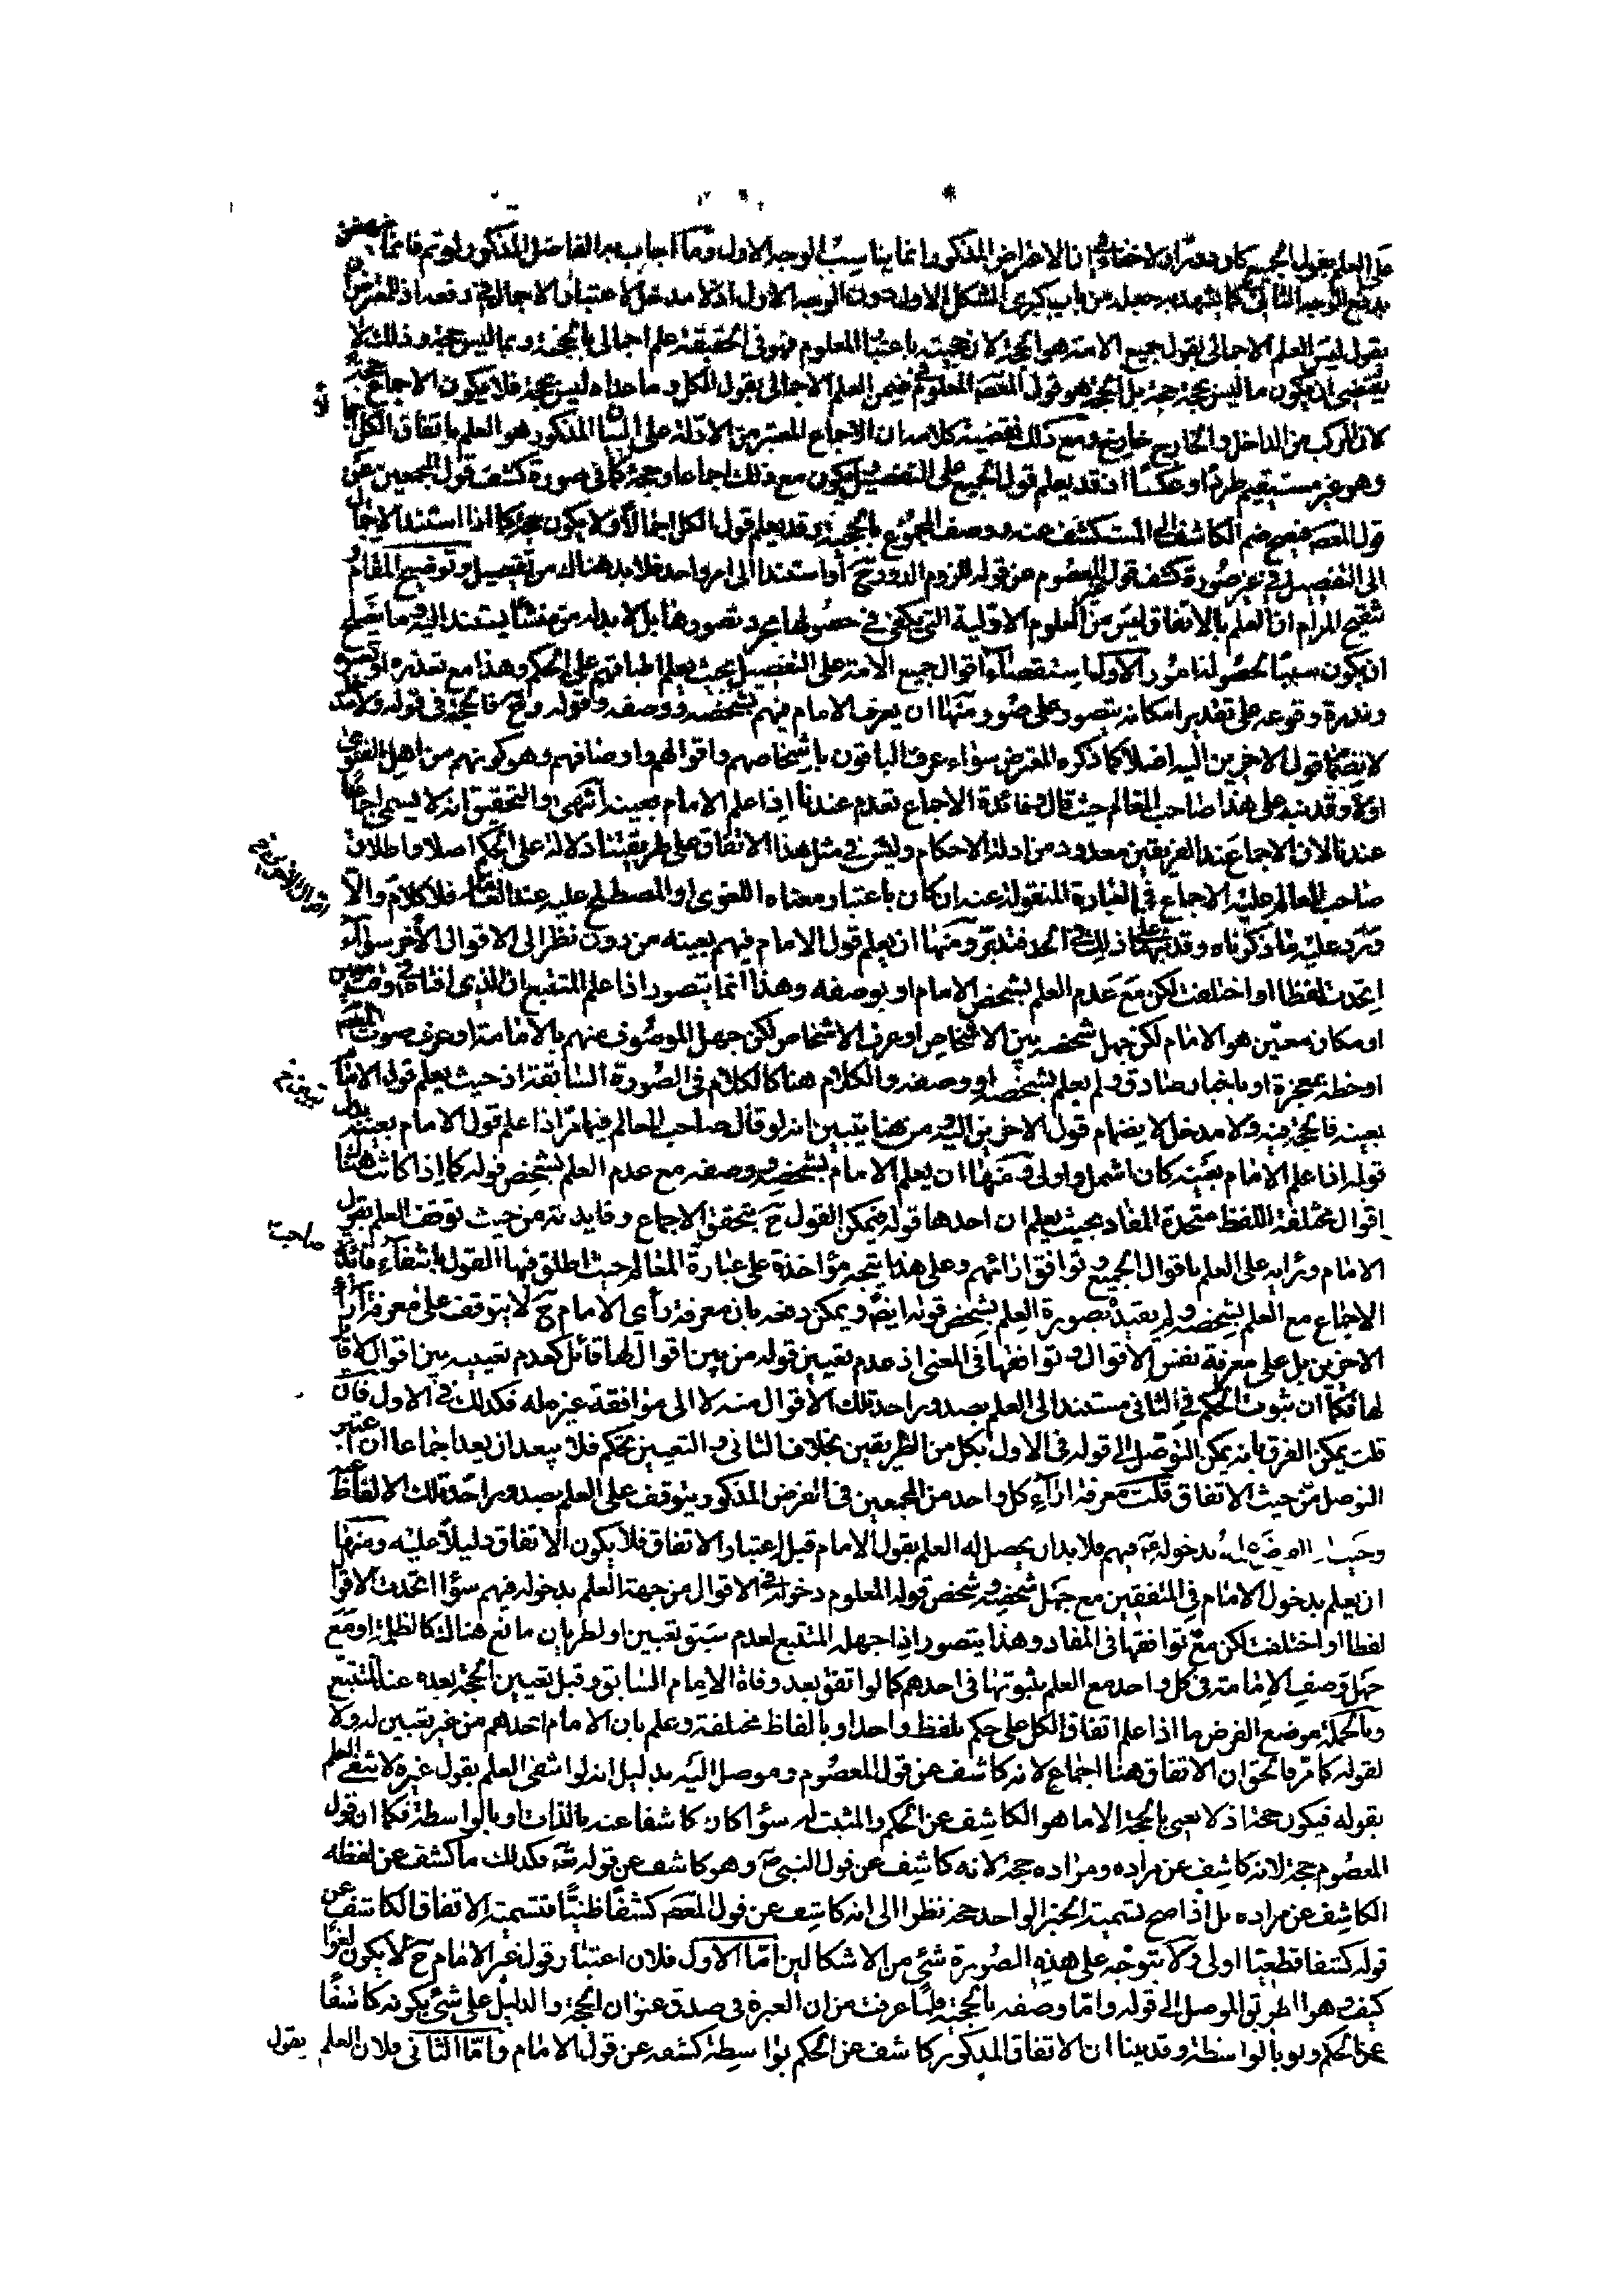 على العلم بقول الجميع كان دورا ولا خفاء في ان الاعتراض المذكور انما يناسب الوجه الاول وما اجاب به الفاضل المذكور لو تم فانما
يدفع الوجه الثاني كما يشهد به جعله من باب كبرى الشكل الاول دون الوجه الاول اذ لا مدخل لاعتبار الاجمال في دفعه اذ للمعترض ان
يقول ليس العلم الاجمالي بقول جميع الامة هو الحجة لان حجيته باعتبار المعلوم فهو في الحقيقة علم اجمالي بالحجة وبما ليس بحجة وذلك لا
يقتضي ان يكون ما ليس بحجة حجة بل الحجة هو قول المعصوم المعلوم في ضمن العلم الاجمالي بقول الكل وما عداه ليس بحجة فلا يكون الاجماع حجة
لان المركب من الداخل والخارج خارج ومع ذلك فقضية كلامه ان الاجماع المعتبر من الادلة على البيان المذكور هو العلم باتفاق الكل
وهو غير مستقيم طردا وعكسا اذ قد يعلم قول الجميع على التفصيل ويكون مع ذلك اجماعا وحجة كما في صورة كشف قول المجمعين عن
قول المعصوم فيصح ضم الكاشف الى المستكشف عنه ووصف المجموع بالحجية وقد يعلم قول الكل اجمالا ولا يكون حجة كما اذا استند الاجمال
الى التفصيل في غير صورة كشف قول غير المعصوم عن قوله للزوم الدور ح او استند الى امر واحد فلا بد هناك من تفصيل وتوضيح المقام و
تنقيح المرام ان العلم بالاتفاق ليس من العلوم الاولية التي يكفي في حصولها مجرد تصورها بل لا بد له من منشأ يستند اليه وما يصلح
ان يكون سببا لحصوله امور الاول استقصاء اقوال جميع الامة على التفصيل بحيث يعلم اطباقهم على الحكم وهذا مع تعذره او تعسره
وندرة وقوعه على تقدير امكانه يتصور على صور منها ان يعرف الامام فيهم بشخصه ووصفه وقوله وح فالحجة في قوله ولا مدخل
لانضمام قول الاخرين اليه اصلا كما ذكره المعترض سواء عرف الباقون باشخاصهم واقوالهم واوصافهم وهو كونهم من اهل الفتوى
اولا وقد نبه على هذا صاحب المعالم حيث قال فائدة الاجماع تعدم عندنا اذا علم الامام بعينه انتهى والتحقيق انه لا يسمى اجماعا
عندنا لان الاجماع عند الفريقين معدود من ادلة الاحكام وليس في مثل هذا الاتفاق على طريقتنا دلالة على الحكم اصلا واطلاق
صاحب المعالم عليه الاجماع في العبارة المنقولة عنه ان كان باعتبار معناه اللغوي او المصطلح عليه عند العامة فلا كلام والا
ورد عليه ما ذكرناه وقد نبهنا على ذلك في الحد فتدبر ومنها ان يعلم قول الامام فيهم بعينه من دون نظر الى الاقوال الاخر سواء
اتحدت لفظا او اختلفت لكن مع عدم العلم بشخص الامام او بوصفه وهذا انما يتصور اذا علم المتتبع ان الذي افتاه في وقت معين
او مكان معين هو الامام لكن جهل شخصه بين الاشخاص او عرف الاشخاص لكن جهل الموصوف منهم بالامامة او عرف صوت المعصوم
او خطه بمعجزة او باخبار صادق ولم يعلم بشخصه او وصفه والكلام هنا كالكلام في الصورة السابقة اذ حيث يعلم قول الامام
بعينه فالحجة فيه ولا مدخل لانضمام قول الاخرين اليه ومن هنا يتبين انه لو قال صاحب المعالم فيما مر اذا علم قول الامام بعينه بدل
قوله اذا علم الامام بعينه كان اشمل واولى ومنها ان يعلم الامام بشخصه ووصفه مع عدم العلم بشخص قوله كما اذا كانت هناك
اقوال مختلفة اللفظ متحدة المفاد بحيث يعلم ان احدها قوله فيمكن القول ح بتحقق الاجماع وفايدته من حيث توقف العلم بقول
الامام وبرايه على العلم باقوال الجميع وتوافق ارائهم وعلى هذا يتجه مؤاخذة على عبارة المعالم حيث اطلق فيها القول بانتفاء فائدة
الاجماع مع العلم بشخصه ولم يقيد بصورة العلم بشخص قوله ايضا ويمكن دفعه بان معرفة رأي الامام ح لا يتوقف على معرفة آراء
الاخرين بل على معرفة نفس الاقوال وتوافقها في المعنى اذ عدم تعيين قوله من بين اقوال لها قائل كعدم تعيينه بين اقوال لا قائل
لها فكما ان ثبوت الحكم في الثاني مستند الى العلم بصدور احد تلك الاقوال منه لا الى موافقة غيره له فكذلك في الاول فان
قلت يمكن الفرق بانه يمكن التوصل الى قوله في الاول بكل من الطريقين بخلاف الثاني والتعيين تحكم فلا يبعد ان يعد اجماعا ان اعتبر
التوصل من حيث الاتفاق قلت معرفة اراء كل واحد من المجمعين في الفرض المذكور يتوقف على العلم بصدور احد تلك الالفاظ
وحيث ان الفرض بدخوله ع فيهم فلا بد ان يحصل له العلم بقول الامام قبل اعتبار الاتفاق فلا يكون الاتفاق دليلا عليه ومنها
ان يعلم بدخول الامام في المتفقين مع جهل شخصه وشخص قوله المعلوم دخوله في الاقوال من جهة العلم بدخوله فيهم سواء اتحدت الاقوال
لفظا او اختلفت لكن مع توافقها في المفاد وهذا يتصور اذا جهله المتتبع لعدم سبق تعيين او لطريان مانع هناك كالظلمة او مع
جهل وصف الامامة في كل واحد مع العلم بثبوتها في احدهم كما لو اتفق بعد وفاة الامام السابق وقبل تعيين الحجة بعده عند المتتبع
وبالجملة موضع الفرض ما اذا علم اتفاق الكل على حكم بلفظ واحد او بالفاظ مختلفة وعلم بان الامام احدهم من غير تعيين له ولا
لقوله كما مر فالحق ان الاتفاق هنا اجماع لانه كاشف عن قول المعصوم وموصل اليه بدليل انه لو انتفى العلم بقول غيره لانتفى العلم
بقوله فيكون حجة اذ لا يعني بالحجة الا ما هو الكاشف عن الحكم والمثبت له سواء كان كاشفا عنه بالذات او بالواسطة فكما ان قول
المعصوم حجة لانه كاشف عن مراده ومراده حجة لانه كاشف عن قول النبي ص وهو كاشف عن قوله تع فكذلك ما كشف عن لفظه
الكاشف عن مراده بل اذا صح تسمية الخبر الواحد حجة نظرا الى انه كاشف عن قول المعصوم كشفا ظنيا فتسمية الاتفاق الكاشف عن
قوله كشفا قطعيا اولى ولا يتوجه على هذه الصورة شئ من الاشكالين اما الاول فلان اعتبار قول غير الامام ح لا يكون لغوا
كيف وهو الطريق الموصل الى قوله واما وصفه بالحجية فلما عرفت من ان العبرة في صدق عنوان الحجة والدليل على شئ بكونه كاشفا
عن الحكم ولو بالواسطة وقد بينا ان الاتفاق المذكور كاشف عن الحكم بواسطة كشفه عن قول الامام واما الثاني فلان العلم بقول